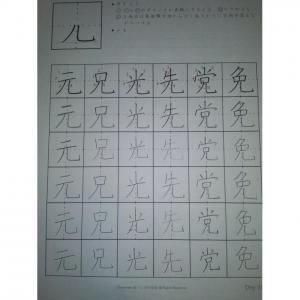 儿
元 兄 光 先 党 免
元 兄 光 先 党 免
元 兄 光 先 党 免
元 兄 光 先 党 免
元 兄 光 先 党 免
元 兄 光 先 党 免
Day